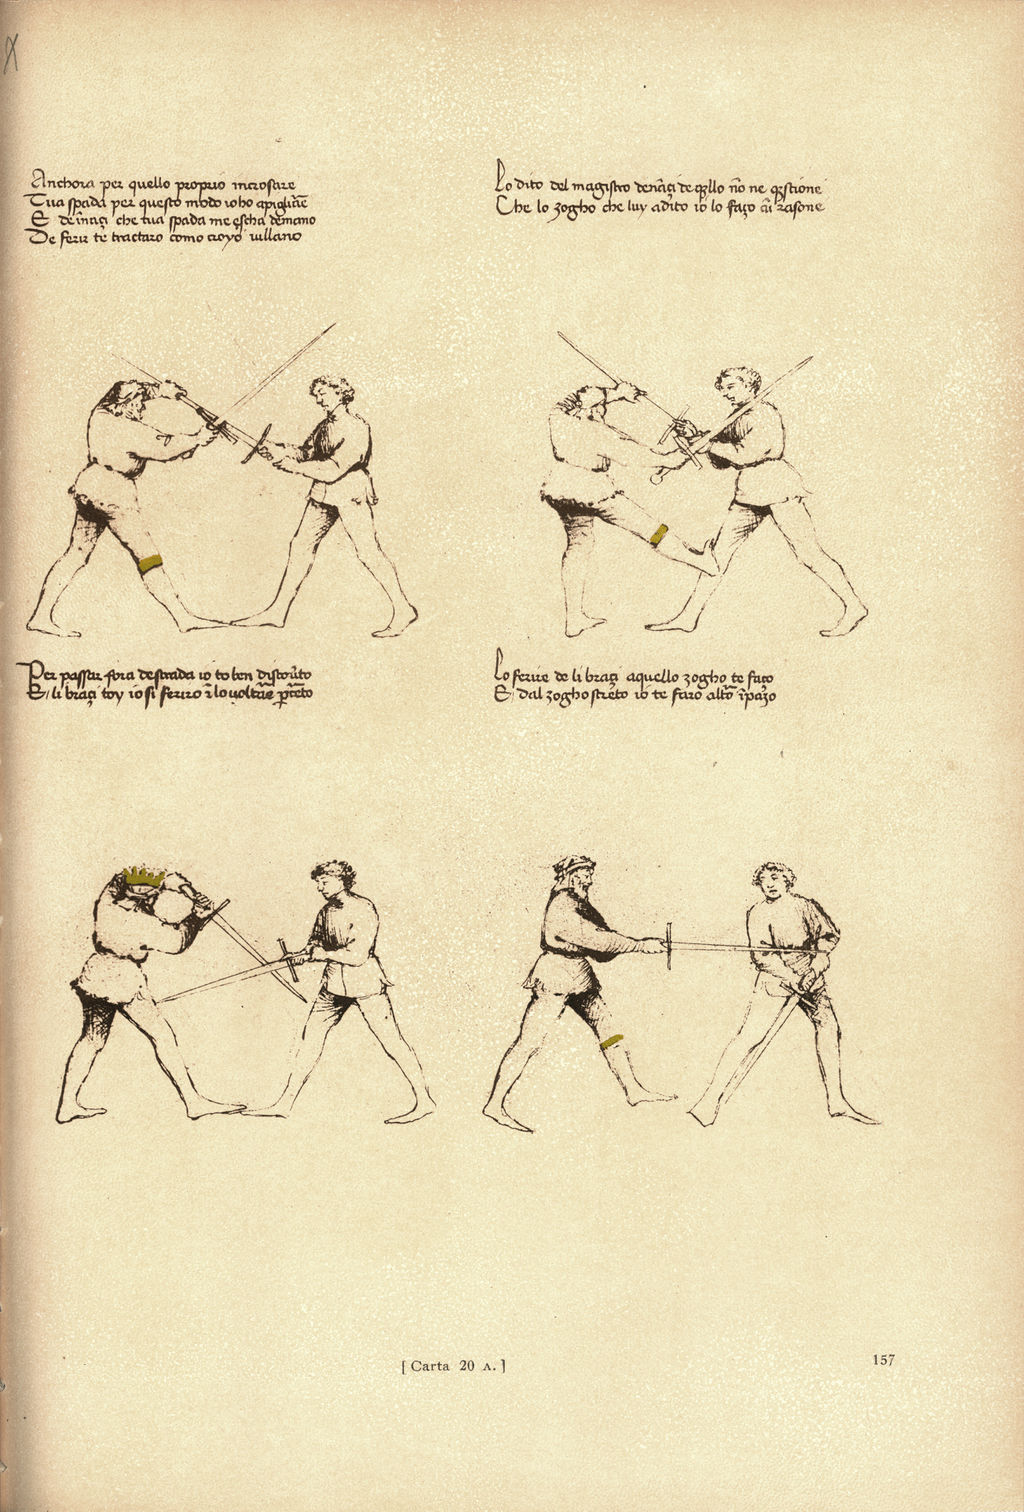 Anchora per quello proprio incrosare
Tua spada per questo modo io ho apigliã̃e
E deĩnaçi che tua spada me escha de mano
De ferir te tractaro como croyo uillano
Lo dito del magistro denãçi de q̃llo nõ ne q̃stione
Che lo zogho che luy a dito io lo fazo cũ rasone
Per passar fora de strada io to ben
E li braçi toy io si feriro ĩ lo uoltar
Lo ferire de li braçi a quello zogho te faço
E dal zogho streto io te faro altro ĩpazo
[Carta 20 A.]
157